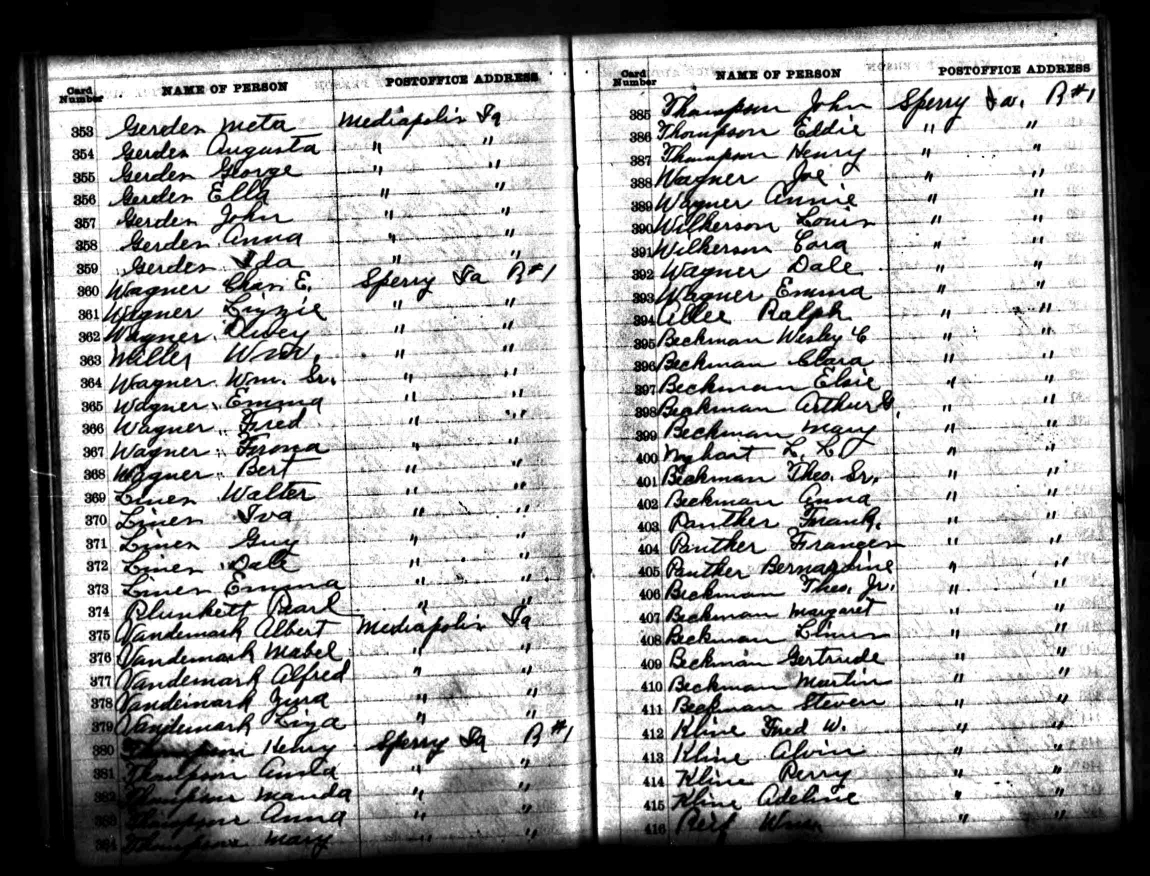 Card Number NAME OF PERSON POSTOFFICE ADDRESS
353 Gerden Meta Mediapolis Ia
354 Gerden Augusta " "
355 Gerden George " "
356 Gerden Ella " "
357 Gerden John " "
358 Gerden Anna " "
359 Gerden Ida " "
360 Wagner Chas E. Sperry Ia R#1
361 Wagner Lizzie " "
362 Wagner Dewey " "
363 Miller Wm. " "
364 Wagner Wm. Sr. " "
365 Wagner Emma " "
366 Wagner Fred " "
367 Wagner " "
368 Wagner Bert " "
369 Linen Walter " "
370 Linen Iva " "
371 Linen Guy " "
372 Linen Dale " "
373 Linen Emma " "
374 Plunkett Pearl " "
375 Vandemark Albert Mediapolis Ia
376 Vandemark Mabel " "
377 Vandemark Alfred " "
378 Vandemark " "
379 Vandemark Liza " "
380 Thompson Henry Sperry Ia R#1
381 Thompson " "
382 Thompson Manda " "
383 Thompson Anna " "
384 Thompson Mary " "
Card Number NAME OF PERSON POSTOFFICE ADDRESS
385 Thompson John Sperry Ia. R#1
386 Thompson Eddie " "
387 Thompson Henry " "
388 Wagner Joe " "
389 Wagner Annie " "
390 Wilkerson Louis " "
391 Wilkerson Cora " "
392 Wagner Dale " "
393 Wagner Emma " "
394 Allee Ralph " "
395 Beckman Wesley C " "
396 Beckman Clara " "
397 Beckman Elsie " "
398 Beckman Arthur G. " "
399 Beckman Mary " "
400 Nyhart L. L. " "
401 Beckman Theo. Sr. " "
402 Beckman Anna " "
403 Panther Frank. " "
404 Panther Frances " "
405 Panther Bernardine " "
406 Beckman Theo. Jr. " "
407 Beckman Margaret " "
408 Beckman Linus " "
409 Beckman Gertrude " "
410 Beckman Martin " "
411 Beckman Steven " "
412 Kline Fred W. " "
413 Kline Alvin " "
414 Kline Perry " "
415 Kline Adeline " "
416 Reif Wm. " "